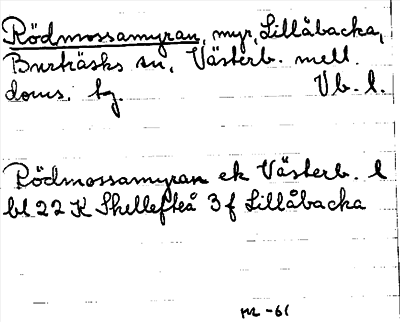 Rödmossamyran, myr, Lillåbacka,
Burträsks sn, Västerb. mell.
doms. tg. Vb. l.
Rödmossamyran ek Västerb. l
bl 22 K Skellefteå 3 f Lillåbacka
-61